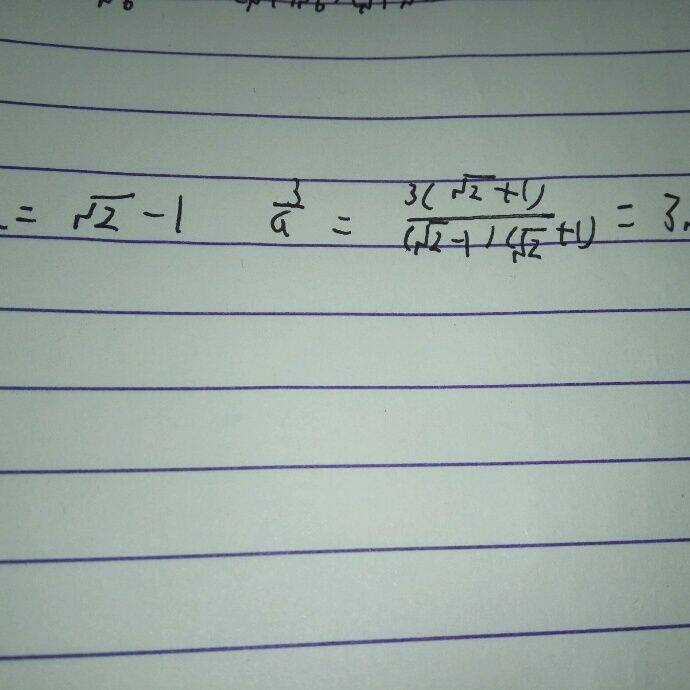 = √2 - 1 3/a = 3(√2 + 1)/(√2 - 1)(√2 + 1) = 3